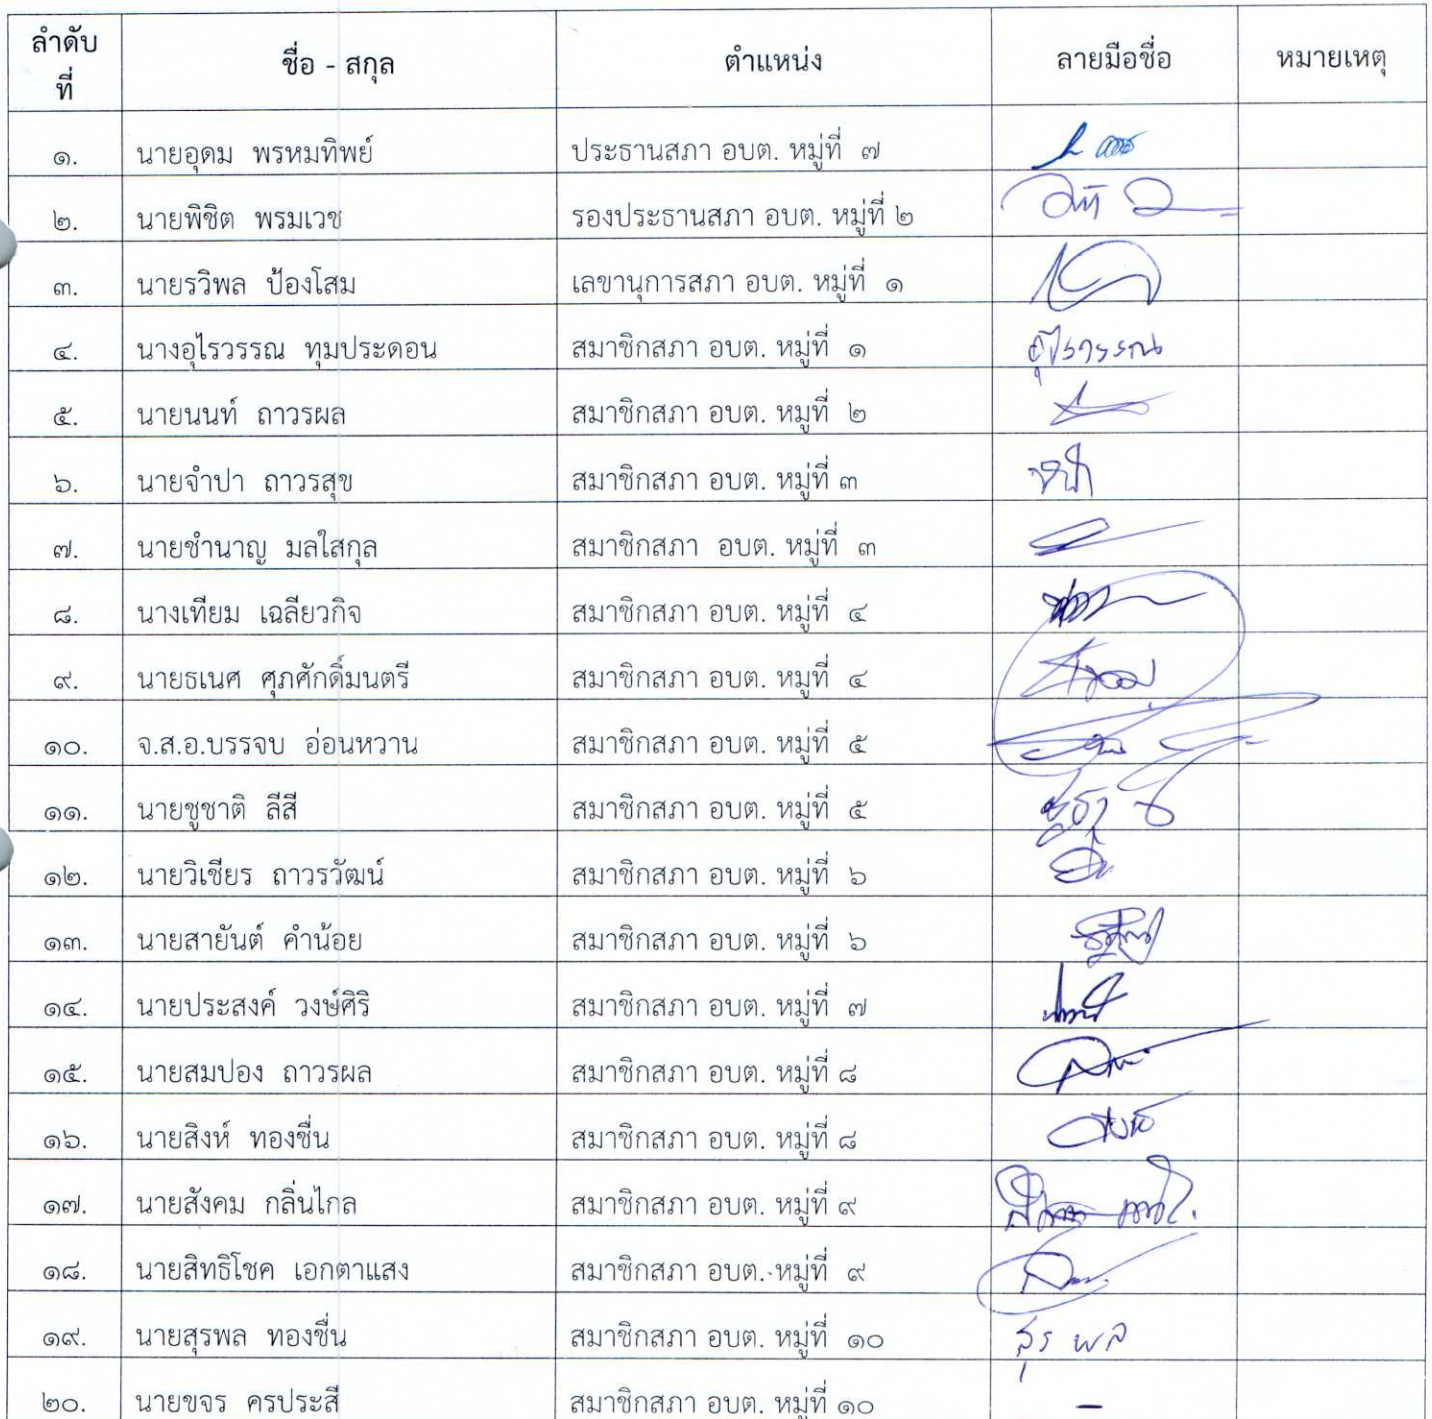 ลำดับที่ ชื่อ - สกุล ตำแหน่ง ลายมือชื่อ หมายเหตุ
๑. นายอุดม พรหมทิพย์ ประธานสภา อบต. หมู่ที่ ๗
๒. นายพิชิต พรมเวช รองประธานสภา อบต. หมู่ที่ ๒
๓. นายรวิพล ป้องโสม เลขานุการสภา อบต. หมู่ที่ ๑
๔. นางอุไรวรรณ ทุมประดอน สมาชิกสภา อบต. หมู่ที่ ๑ อุไรวรรณ
๕. นายนนท์ ถาวรผล สมาชิกสภา อบต. หมู่ที่ ๒
๖. นายจำปา ถาวรสุข สมาชิกสภา อบต. หมู่ที่ ๓
๗. นายชำนาญ มลใสกุล สมาชิกสภา อบต. หมู่ที่ ๓
๘. นางเทียม เฉลียวกิจ สมาชิกสภา อบต. หมู่ที่ ๔
๙. นายธเนศ ศุภศักดิ์มนตรี สมาชิกสภา อบต. หมู่ที่ ๔
๑๐. จ.ส.อ.บรรจบ อ่อนหวาน สมาชิกสภา อบต. หมู่ที่ ๕
๑๑. นายชูชาติ ลีสี สมาชิกสภา อบต. หมู่ที่ ๕
๑๒. นายวิเชียร ถาวรวัฒน์ สมาชิกสภา อบต. หมู่ที่ ๖
๑๓. นายสายันต์ คำน้อย สมาชิกสภา อบต. หมู่ที่ ๖
๑๔. นายประสงค์ วงษ์ศิริ สมาชิกสภา อบต. หมู่ที่ ๗
๑๕. นายสมปอง ถาวรผล สมาชิกสภา อบต. หมู่ที่ ๘
๑๖. นายสิงห์ ทองชื่น สมาชิกสภา อบต. หมู่ที่ ๘
๑๗. นายสังคม กลิ่นไกล สมาชิกสภา อบต. หมู่ที่ ๙
๑๘. นายสิทธิโชค เอกตาแสง สมาชิกสภา อบต. หมู่ที่ ๙
๑๙. นายสุรพล ทองชื่น สมาชิกสภา อบต. หมู่ที่ ๑๐ สุรพล
๒๐. นายขจร ครประสี สมาชิกสภา อบต. หมู่ที่ ๑๐ -